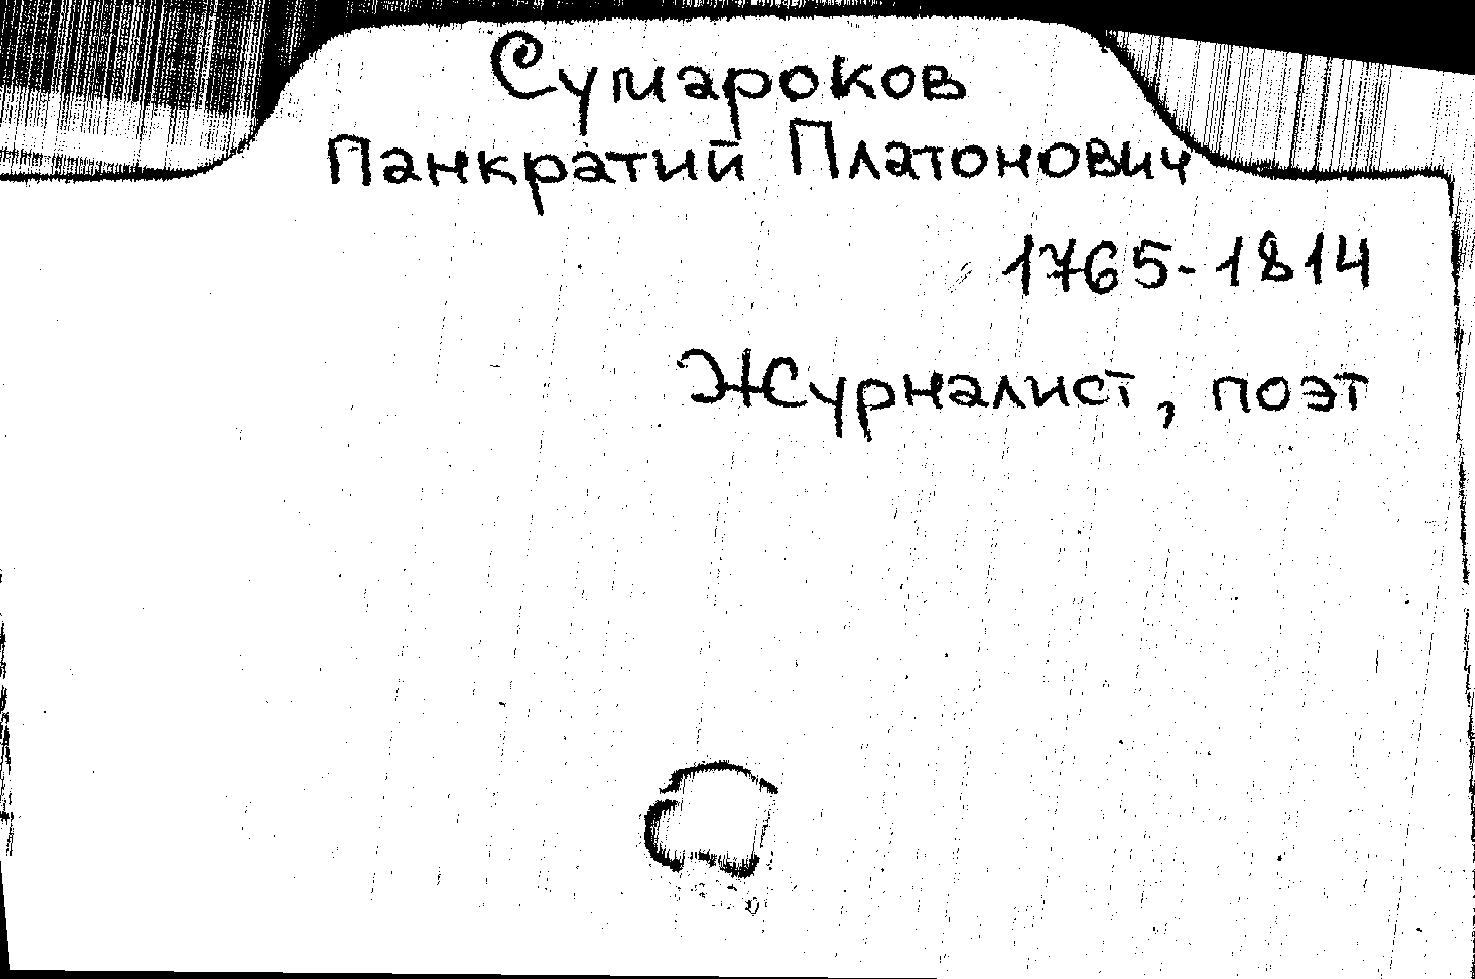 Сумароков
Панкратий Платонович
1765-1814
Журналист, поэт